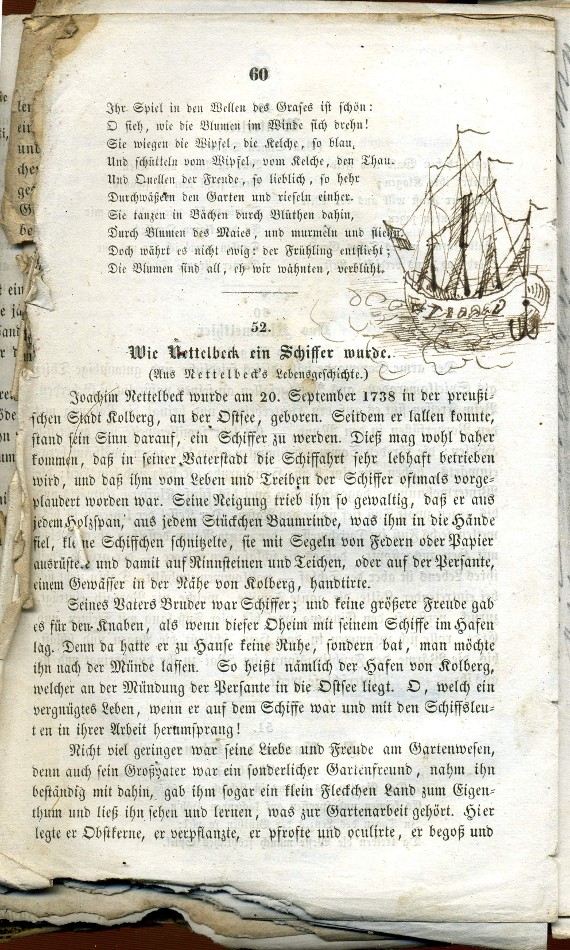 60
Ihr Spiel in den Wellen des Grases ist schön:
O sieh, wie die Blumen im Winde sich drehn!
Sie wiegen die Wipfel, die Kelche, so blau,
Und schütteln vom Wipfel, vom Kelche, den Thau.
Und Quellen der Freude, so lieblich, so hehr
Durchwäßern den Garten und rieseln einher.
Sie tanzen in Bächen durch Blüthen dahin,
Durch Blumen des Maies, und murmeln und fliehn.
Doch währt es nicht ewig: der Frühling entflieht;
Die Blumen sind all, eh wir wähnten, verblüht.
52.
Wie Nettelbeck ein Schiffer wurde.
(Aus Nettelbeck's Lebensgeschichte.)
Joachim Nettelbeck wurde am 20. September 1738 in der preußi-
schen Stadt Kolberg, an der Ostsee, geboren. Seitdem er lallen konnte,
stand sein Sinn darauf, ein Schiffer zu werden. Dieß mag wohl daher
kommen, daß in seiner Vaterstadt die Schiffahrt sehr lebhaft betrieben
wird, und daß ihm vom Leben und Treiben der Schiffer oftmals vorge-
plaudert worden war. Seine Neigung trieb ihn so gewaltig, daß er aus
jedem Holzspan, aus jedem Stückchen Baumrinde, was ihm in die Hände
fiel, kleine Schiffchen schnitzelte, sie mit Segeln von Federn oder Papier
ausrüstete und damit auf Rinnsteinen und Teichen, oder auf der Persante,
einem Gewässer in der Nähe von Kolberg, handtirte.
Seines Vaters Bruder war Schiffer; und keine größere Freude gab
es für den Knaben, als wenn dieser Oheim mit seinem Schiffe im Hafen
lag. Denn da hatte er zu Hause keine Ruhe, sondern bat, man möchte
ihn nach der Münde lassen. So heißt nämlich der Hafen von Kolberg,
welcher an der Mündung der Persante in die Ostsee liegt. O, welch ein
vergnügtes Leben, wenn er auf dem Schiffe war und mit den Schiffsleu-
ten in ihrer Arbeit herumsprang!
Nicht viel geringer war seine Liebe und Freude am Gartenwesen,
denn auch sein Großvater war ein sonderlicher Gartenfreund, nahm ihn
beständig mit dahin, gab ihm sogar ein klein Fleckchen Land zum Eigen-
thum und ließ ihn sehen und lernen, was zur Gartenarbeit gehört. Hier
legte er Obstkerne, er verpflanzte, er pfrofte und oculirte, er begoß und